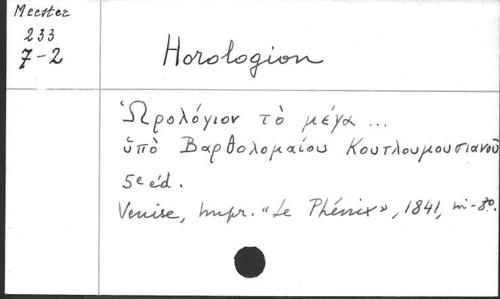 Meester
233
7-2
Horologion
Ὡρολόγιον τὸ μέγα ...
ὑπὸ Βαρθολομαίου Κουτλουμουσιανοῦ
5e éd.
Venise, Impr. «Le Phénix», 1841, in-8o.